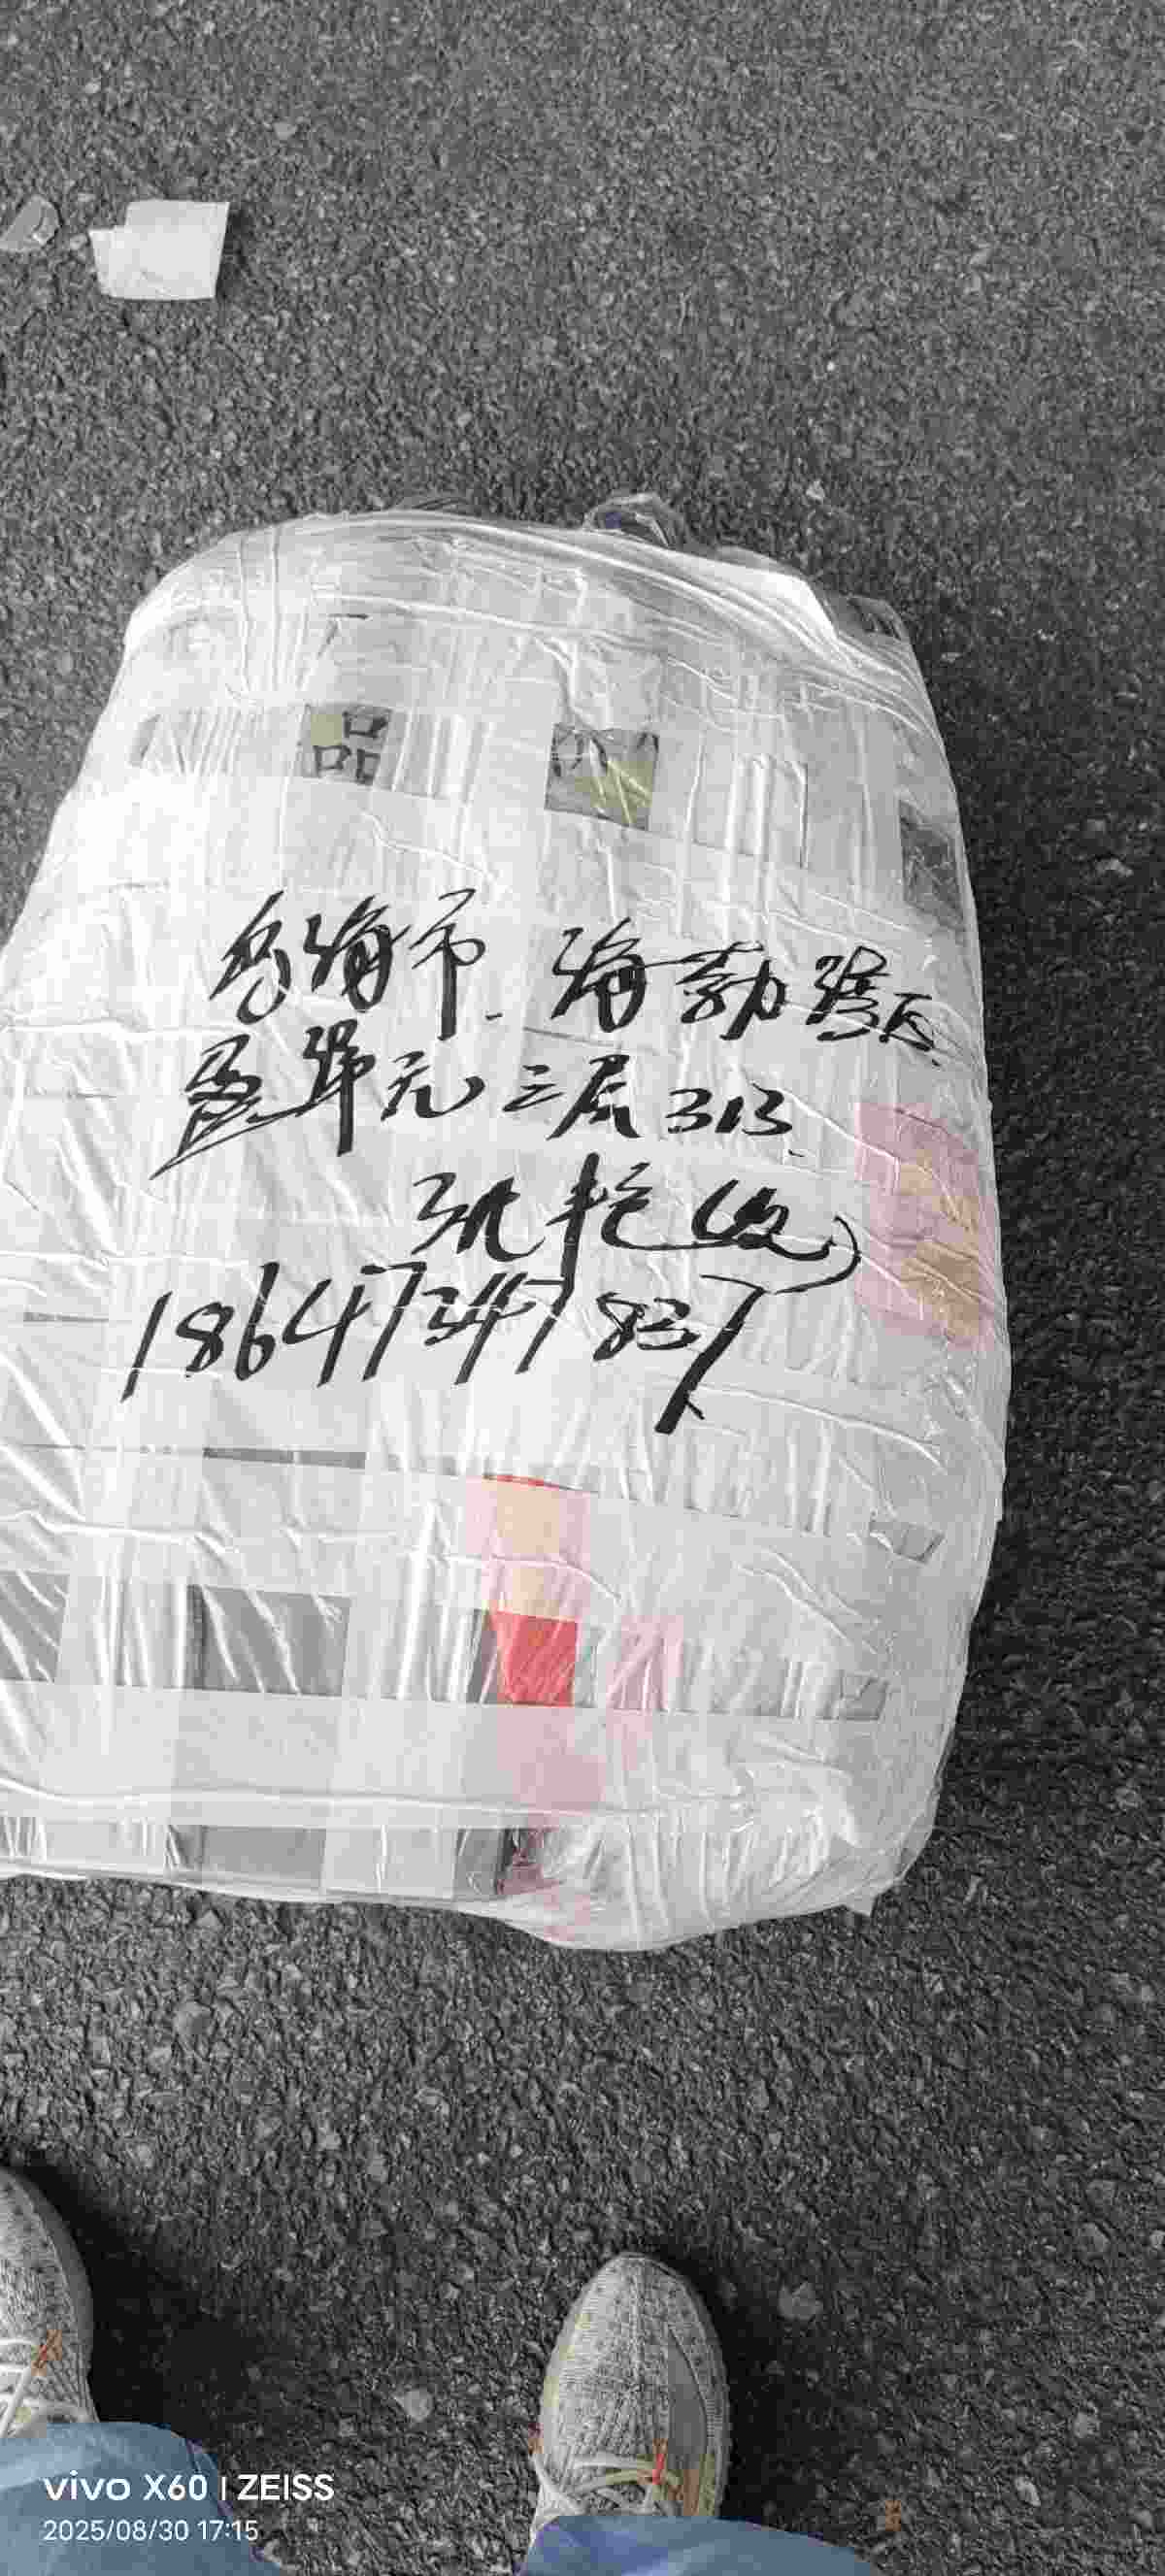 品
乌海市 海勃湾区
盈华元三层313
张艳俊
18647347837
vivo X60 | ZEISS
2025/08/30 17:15